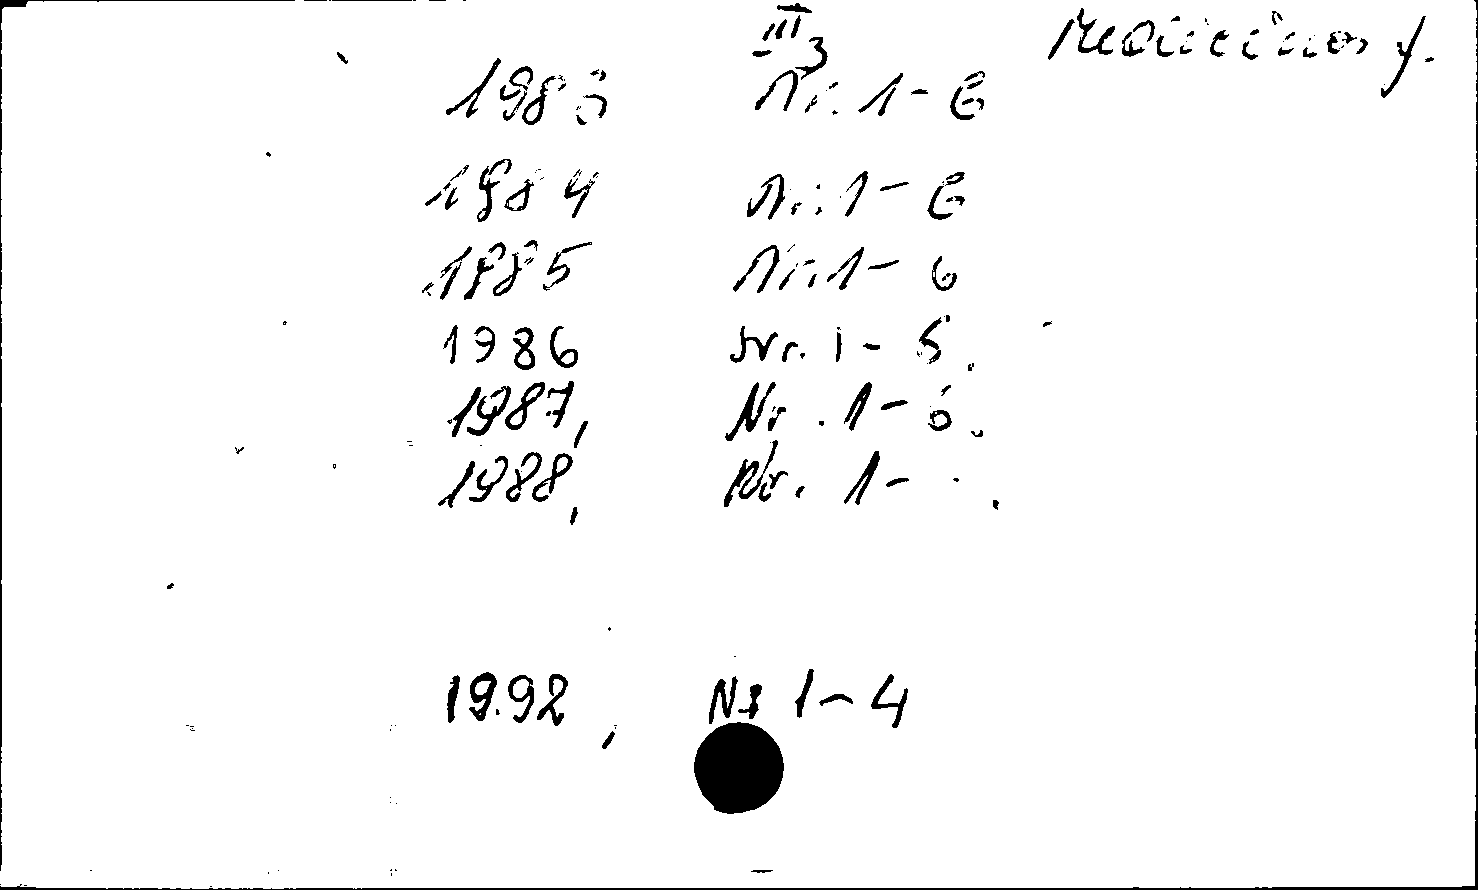 III3 Medicinos f.
1983 Nr. 1-6
1984 Nr. 1-6
1985 Nr. 1-6
1986 Nr. 1-6.
1987, Nr. 1-6.
1988, Nr. 1- .
1992, Nr 1-4